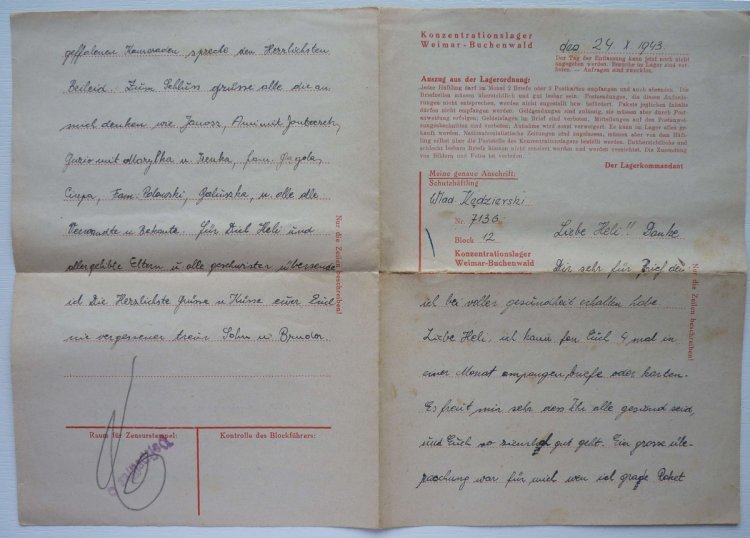 Konzentrationslager
Weimar-Buchenwald
den 24. X. 1943
Der Tag der Entlassung kann jetzt noch nicht
angegeben werden. Besuche im Lager sind ver-
boten. — Anfragen sind zwecklos.
Auszug aus der Lagerordnung:
Jeder Häftling darf im Monat 2 Briefe oder 2 Postkarten empfangen und auch absenden. Die
Briefzeilen müssen übersichtlich und gut lesbar sein. Postsendungen, die diesen Anforde-
rungen nicht entsprechen, werden nicht zugestellt bezw. befördert. Pakete jeglichen Inhalts
dürfen nicht empfangen werden. Geldsendungen sind zulässig, sie müssen aber durch Post-
anweisung erfolgen; Geldeinlagen im Brief sind verboten. Mitteilungen auf den Postanwei-
sungsabschnitten sind verboten; Annahme wird sonst verweigert. Es kann im Lager alles ge-
kauft werden. Nationalsozialistische Zeitungen sind zugelassen, müssen aber von dem Häft-
ling selbst über die Poststelle des Konzentrationslagers bestellt werden. Unübersichtliche und
schlecht lesbare Briefe können nicht zensiert werden und werden vernichtet. Die Zusendung
von Bildern und Fotos ist verboten.
Der Lagerkommandant
Meine genaue Anschrift:
Schutzhäftling
Wlad. Kędzierski
Nr. 7136
Block 12
Konzentrationslager
Weimar-Buchenwald
Liebe Heli!! Danke
Dir sehr für Brief den
ich bei voller gesundheit erhalten habe
Liebe Heli, ich kann fon Euch 4 mal in
einer Monat empfangen briefe oder karten.
Es freit mir sehr dass Ihr alle gesund seid,
und Euch so ziemlich gut geht. Ein grosse übe-
raschung war für mich wen ich Paket
Nur die Zeilen beschreiben!
geffalenen Kameraden, sprecte den Herrlichsten
Beileid. Zum Schluss grüsse alle die an
mich denken wie Janosz,
mit Marylka u. Renka, fam.
Fam. Galuszka, u. alle alle
Verwandte u Bekante. Für Dich Heli und
allergelibte Eltern u alle geschwister übersende
ich Die Herzlichste Grüsse u Küsse euer Euch
nie vergessener treur Sohn u Bruder
Nur die Zeilen beschreiben!
Raum für Zensurstempel:
Kontrolle des Blockführers: